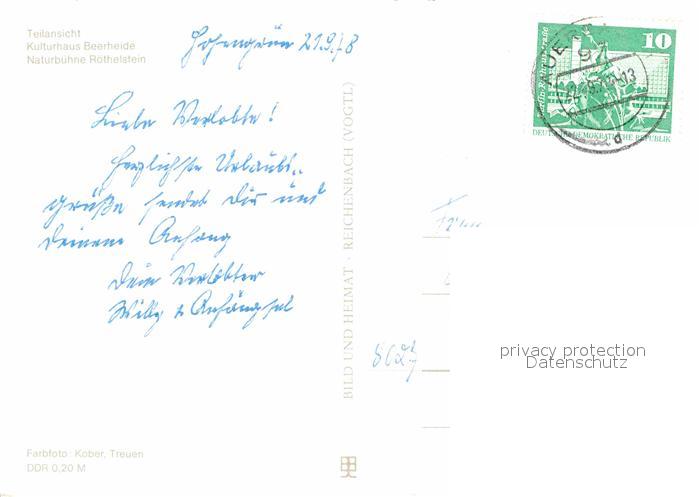 Teilansicht
Kulturhaus Beerheide
Naturbühne Röthelstein
Hohengrün 21.9.78
Liebe Verlobte!
Herzlichste Urlaubs-
grüße sendet Dir und
Deinem Anhang
Dein Verlobter
Willy + Anhängsel
BILD UND HEIMAT · REICHENBACH (VOGTL)
10
DEUTSCHE DEMOKRATISCHE REPUBLIK
privacy protection
Datenschutz
Farbfoto: Kober, Treuen
DDR 0,20 M